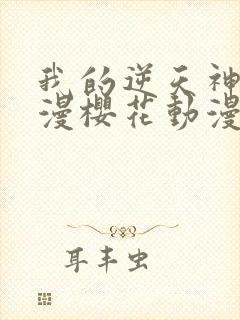 我的逆天神
漫樱花動漫
耳丰虫